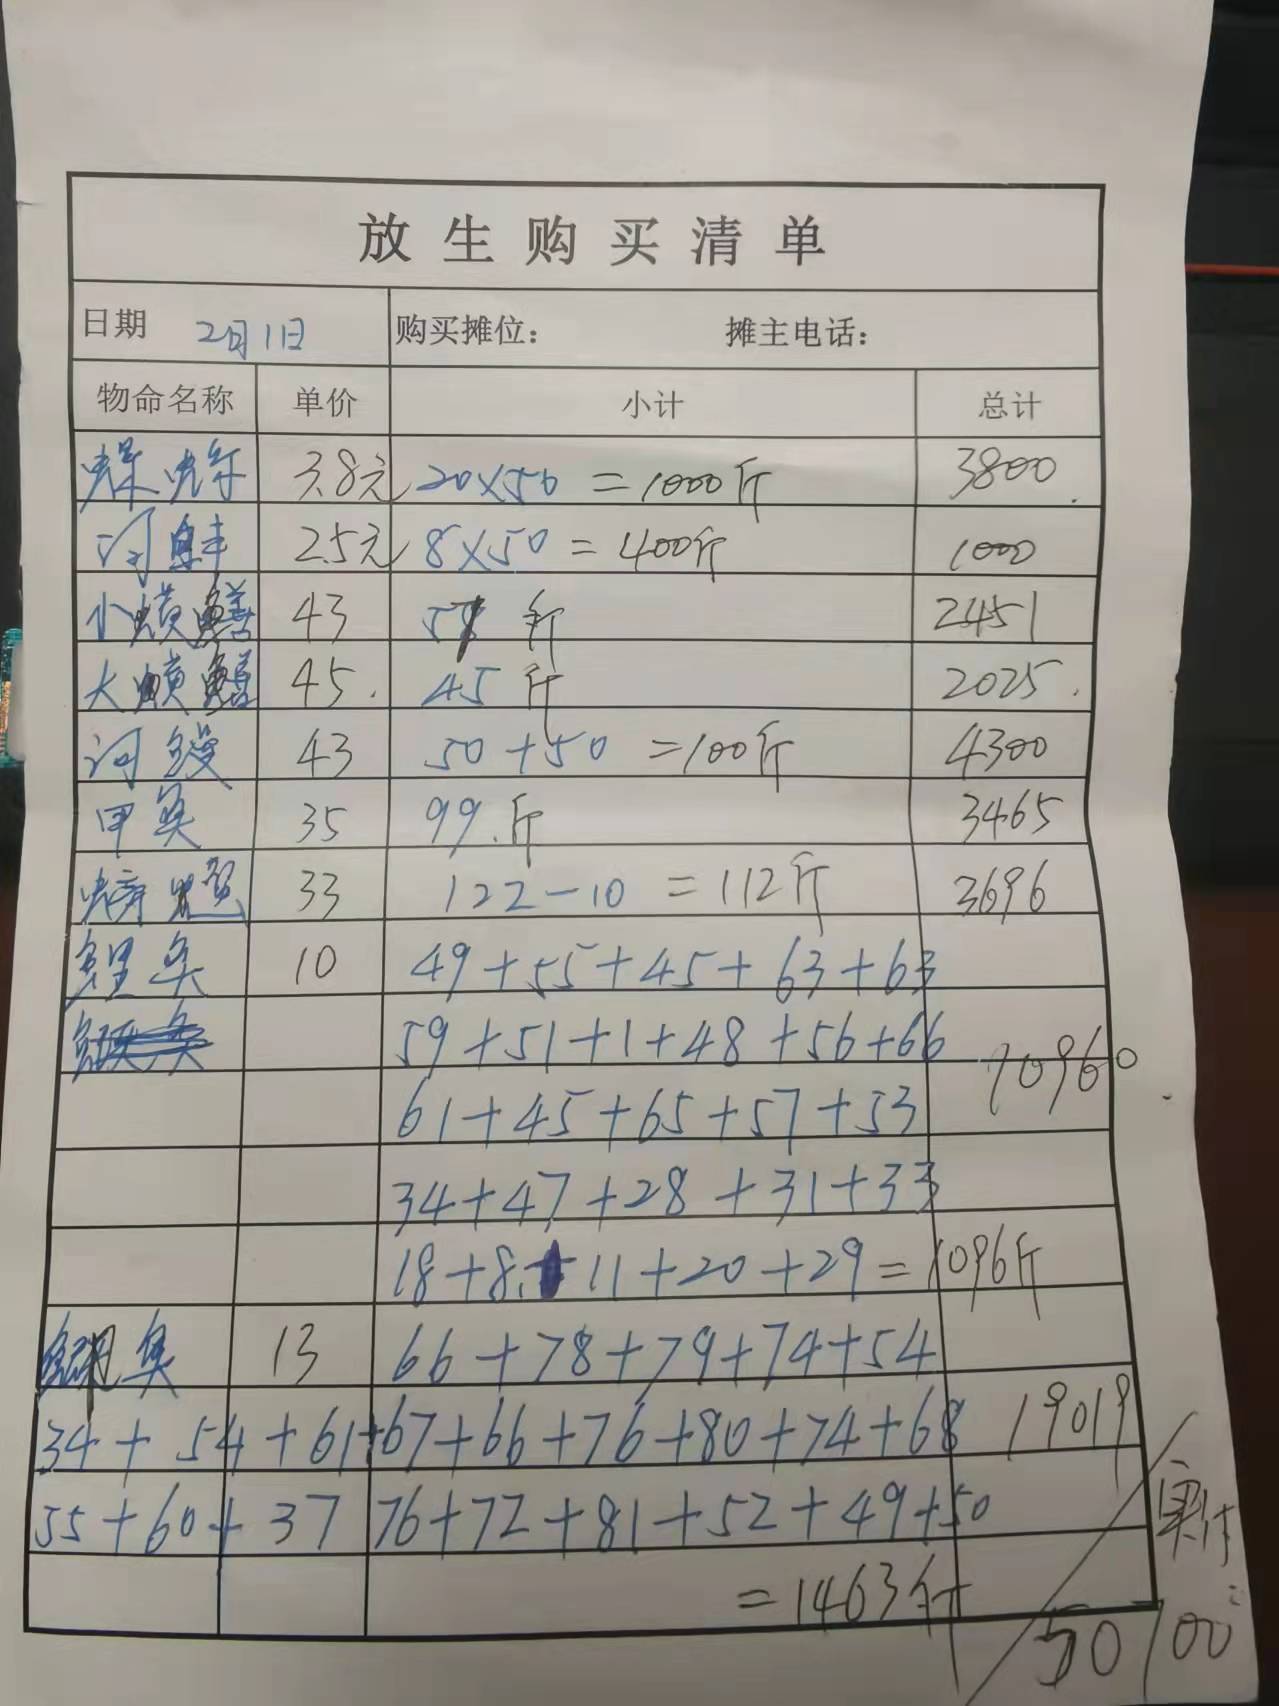 放生购买清单
日期 2月1日 购买摊位： 摊主电话：
物命名称 单价 小计 总计
3.8元 20×50 =1000斤 3800.
河蚌 2.5元 8×50 =400斤 1000
小黄鳝 43 57 斤 2451
大黄鳝 45. 45斤 2025.
河鳗 43 50+50 =100斤 4300
甲鱼 35 99.斤 3465
33 122-10 =112斤 3696
鲤鱼 10 49+55+45+63+63
59+51+1+48+56+66 10960
61+45+65+57+53
34+47+28+31+33
18+8+11+20+29=1096斤
鱼 13 66+78+79+74+54
34+54+61+67+66+76+80+74+68 19019
55+60+37 76+72+81+52+49+50
=1463斤
实付：
50700